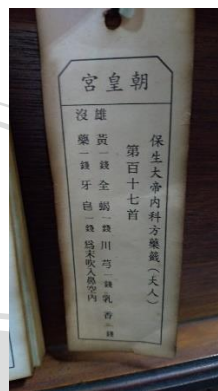 朝皇宮
保生大帝內科方藥籤(大人)
第百十七首
雄黃一錢全蝎一錢川芎一錢乳香一錢
沒藥一錢牙皂一錢為末吹入鼻空內